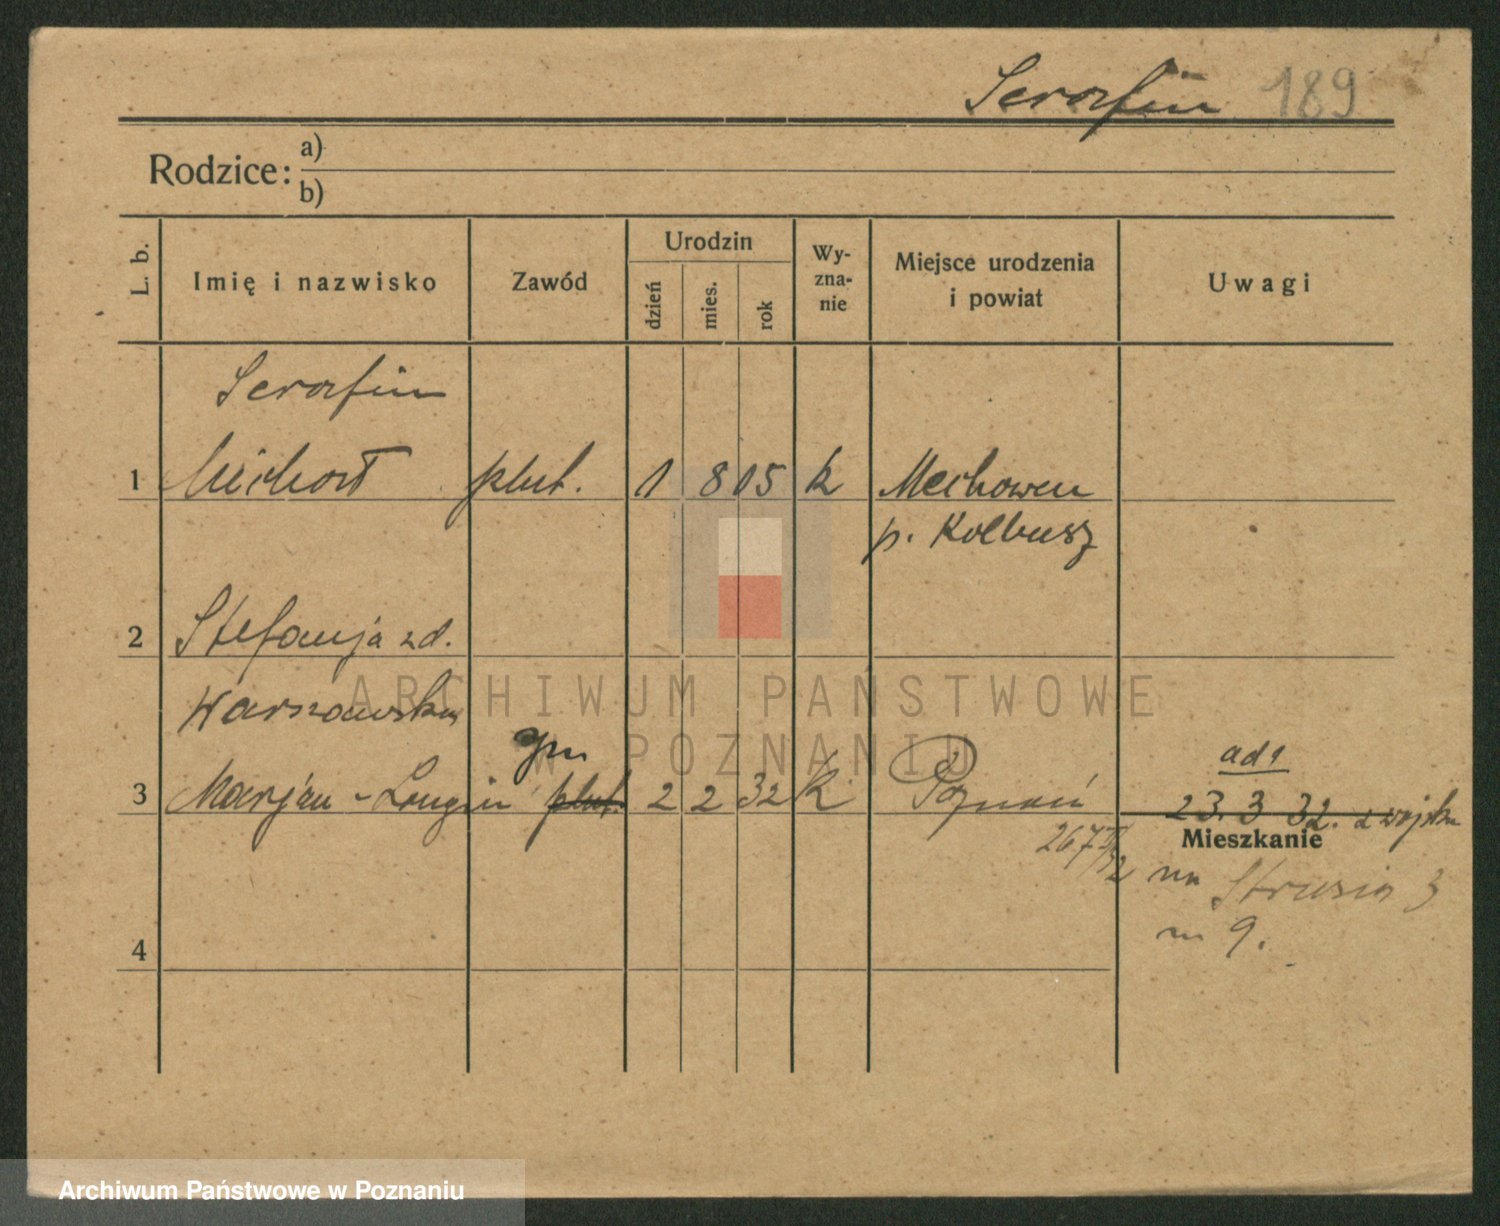 Serafin 189
Rodzice: a)
b)
L. b.
Imię i nazwisko
Zawód
Urodzin
dzień
mies.
rok
Wy-
zna-
nie
Miejsce urodzenia
i powiat
Uwagi
Serafin
1 Michał plut. 1 8 05 k Mechowen
p. Kolbusz
2 Stefanja zd.
Warszawska
gm
3 Marjan - Longin plut. 2 2 32 k Poznań
ad 1
23. 3 32. z wojska
Mieszkanie
267 II/32
na Strusia 3
m 9.
4
ARCHIWUM PAŃSTWOWE
W POZNANIU
Archiwum Państwowe w Poznaniu